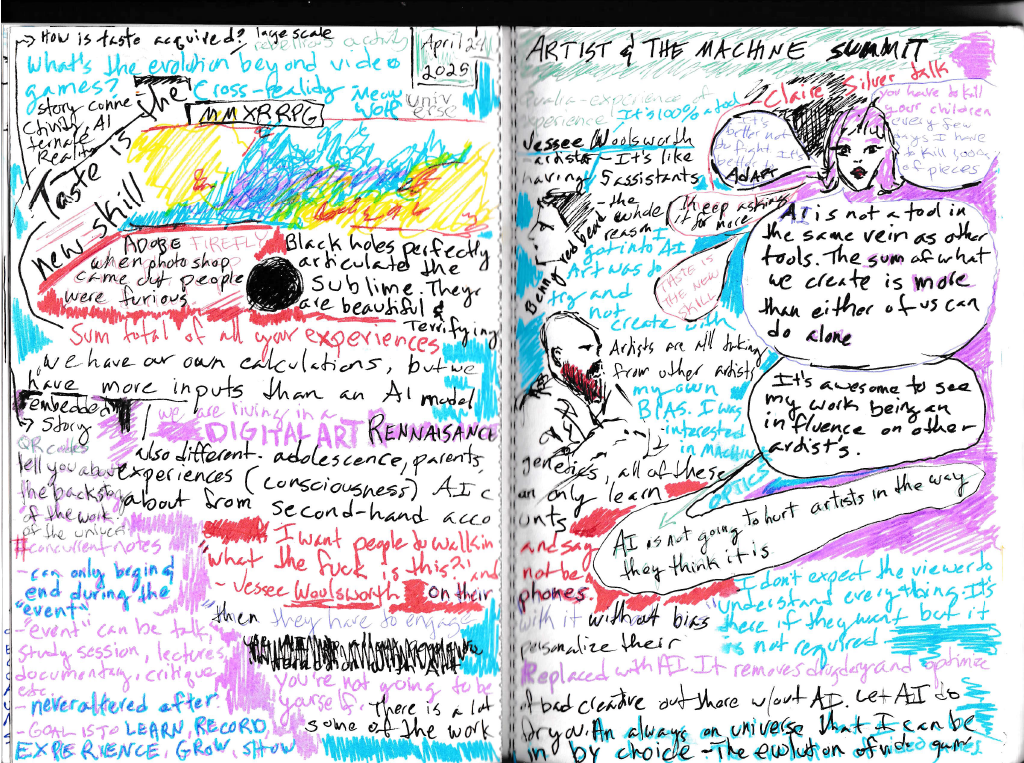 → How is taste acquired? large scale
rebellious activity
April 24
2025
What's the evolution beyond video
games?
the Cross-reality Meow
Wolf
Univ
erse
Story conne
ctivity, AI
ternate
Reality
MMXRRPG
Taste is
new skill
ADOBE FIREFLY
when photoshop
came out people
were furious
Black holes perfectly
articulate the
Sublime. They
are beautiful &
Terrifying
Sum total of all your experiences
we have our own calculations, but we
have more inputs than an AI model
embedded
→ Story
we are living in a
DIGITAL ART RENNAISANCE
QR codes
tell you about
the backstory
of the work
of the universe
also different - adolescence, parents,
experiences (consciousness) AI c
about from second-hand acco
I want people to walk in
what the fuck is this?' and
- Vessee Woolsworth on their
#concurrent notes
- can only begin &
end during the
"event"
- "event" can be talk,
study session, lectures,
documentary, critique
etc.
- never altered after
- GOAL IS TO LEARN, RECORD,
EXPERIENCE, GROW, SHOW
then they have to engage
interaction with Art
you're not going to be
yourself.
There is a lot
some of the work
ARTIST & THE MACHINE SUMMIT
- Claire Silver talk
Qualia - experience of
experience
It's 100% a tool
Vessee Woolsworth
artists - It's like
having 5 assistants
- the
whole
reason I
got into AI
Art was to
try and
not
create with
my own
BIAS. I was
interested
in MACHINE
OPTICS
It's
better not
to fight. It's
better to
ADAPT
you have to kill
your children
every few
days I have
to kill 1000s
of pieces
I keep asking
it for more
TASTE IS
THE NEW
SKILL
AI is not a tool in
the same vein as other
tools. The sum of what
we create is more
than either of us can
do alone
Artists are all taking
from other artists
It's awesome to see
my work being an
influence on other
artist's.
genetics, all of these
an only learn
unts
AI is not going to hurt artists in the way
they think it is
and say
not be a
phones.
with it without bias
personalize their
I don't expect the viewer to
understand everything. It's
there if they want but it
is not required
Replaced with AI. It removes drudgery and optimize
of bad creative out there w/out AI. Let AI do
for you. An always on universe that I can be
in by choice - The evolution of video games